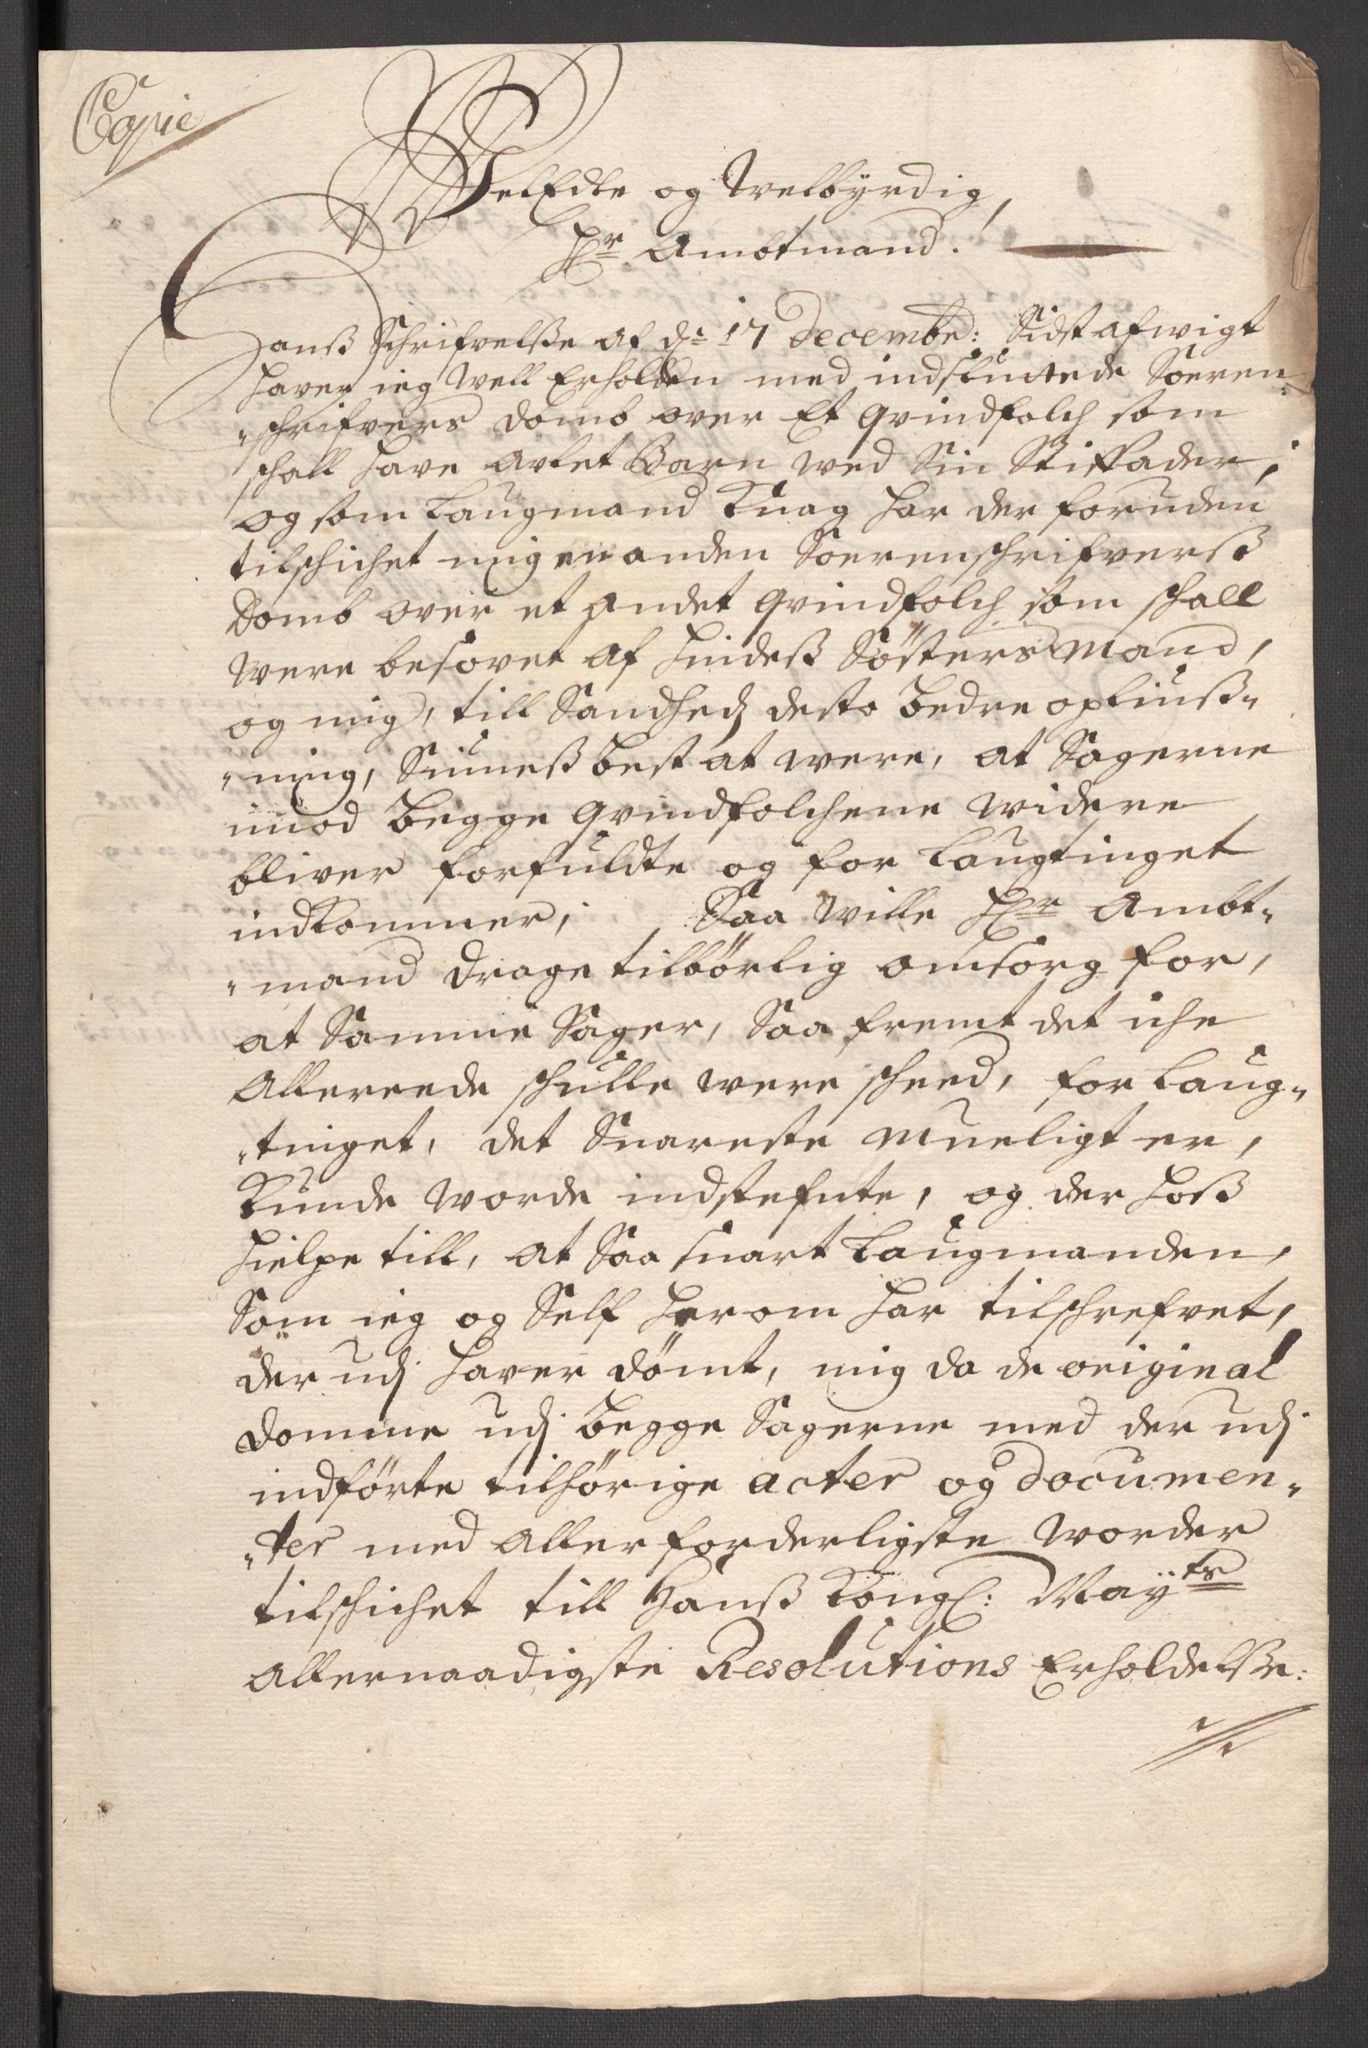 Copie
WelEdle og Welbyrdig,
Hr Ambtmand!
Hanß Schrifvelße af dn 17 decembr: Sidst afwigt
haver ieg well Erholden med indsluttede Soeren-
schrifvers domb over Et qvindfolch som
schall have avlet Barn wed Sin Stiffader;
og som Laugmand Knag har der foruden
tilschichet mig en anden Sorenschrifverß
domb over et andet qvindfolch som schall
were besovet af hindeß Søsters mand,
og mig, till Sandhed desto bedre opliuß-
ning, Siuneß best at were, at Sagerne
imod begge qvindfolchene widere
bliver forfuldte og for Laugtinget
indkommer; Saa wille Hr Ambt-
mand drage tilbørlig omsorg for,
at Samme Sager, Saa fremt det iche
allereede schulle were scheed, for Laug-
tinget, det Snareste mueligt er,
kunde worde indstefnte, og der hoß
hielpe till, at Saa snart Laugmanden,
Som ieg og Self herom har tilschrefvet,
der udj haver dømt, mig da de original
domme udj begge Sagerne med der udj
indførte tilhørige acter og documen-
ter med aller forderligste worder
tilschichet till Hanß Kongl: Mayts
allernaadigste Resolutions Erholdelße: